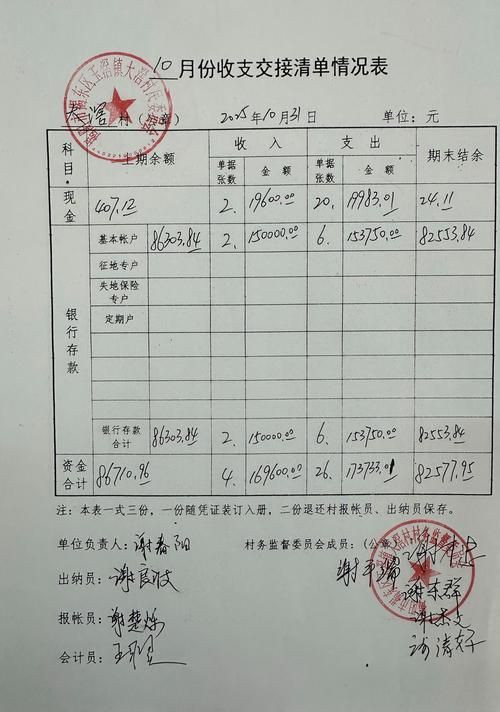 10月份收支交接清单情况表
大滘村（盖章） 2025年10月31日 单位：元
科目 上期余额 收入 支出 期末结余
单据张数 金额 单据张数 金额
现金 407.12 2. 19600.00 20. 19983.01 24.11
银行存款
基本帐户 86303.84 2. 150000.00 6. 153750.00 82553.84
征地专户
失地保险专户
定期户
银行存款合计 86303.84 2. 150000.00 6. 153750.00 82553.84
资金合计 86710.96 4. 169600.00 26. 173733.01 82577.95
注：本表一式三份，一份随凭证装订入册，二份退还村报帐员、出纳员保存。
单位负责人：谢春阳 村务监督委员会成员：（公章）
出纳员：谢良波 谢平瑞
谢东群
报帐员：谢楚灿 谢杰文
会计员：